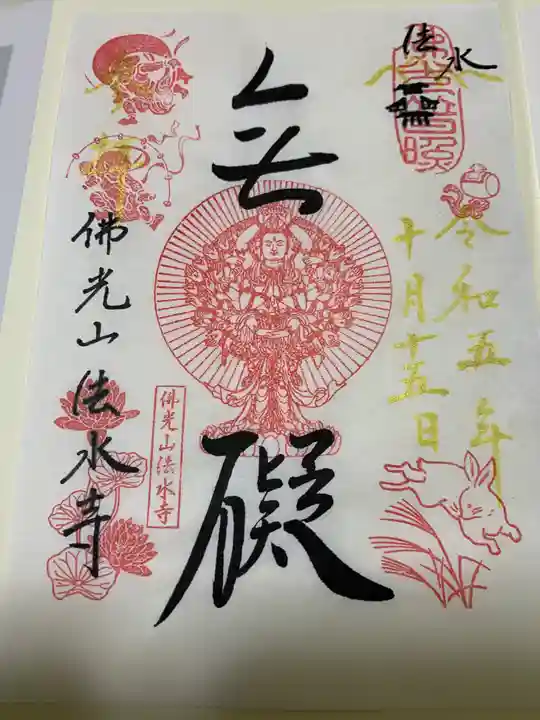 法水
令和五年
十月十五日
無
礙
佛光山法水寺
佛光山法水寺